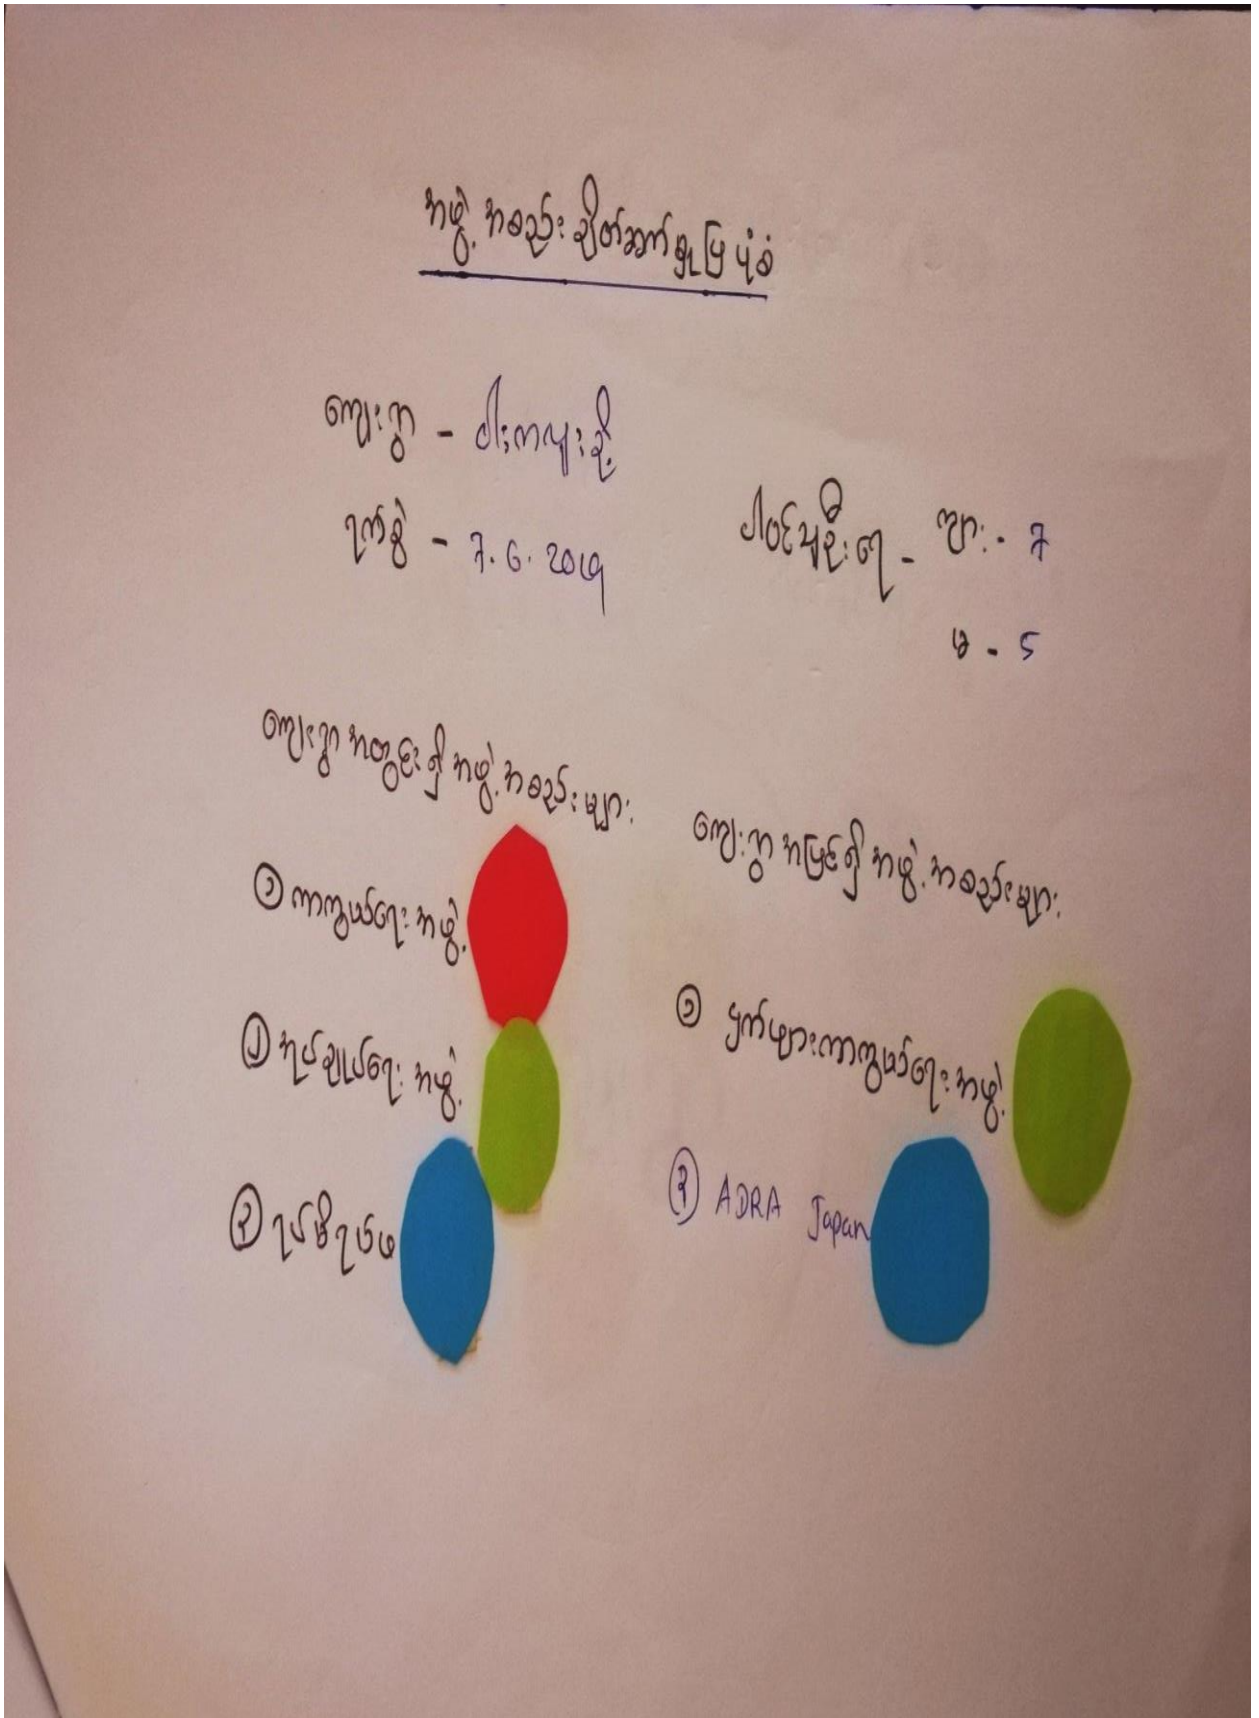 အဖွဲ့အစည်းချိတ်ဆက်မှုပြပုံစံ
ကျေးရွာ - ဝါးကလူးခို့
ရက်စွဲ - ၇.၆.၂၀၁၅
ပါဝင်သူဦးရေ - ကျား - ၇
မ - ၄
ကျေးရွာအတွင်းရှိ အဖွဲ့အစည်းများ
① ကာကွယ်ရေးအဖွဲ့
② အုပ်ချုပ်ရေးအဖွဲ့
③ ရပ်မိရပ်ဖ
ကျေးရွာအပြင်ရှိ အဖွဲ့အစည်းများ
① ငှက်ဖျားကာကွယ်ရေးအဖွဲ့
② ADRA Japan